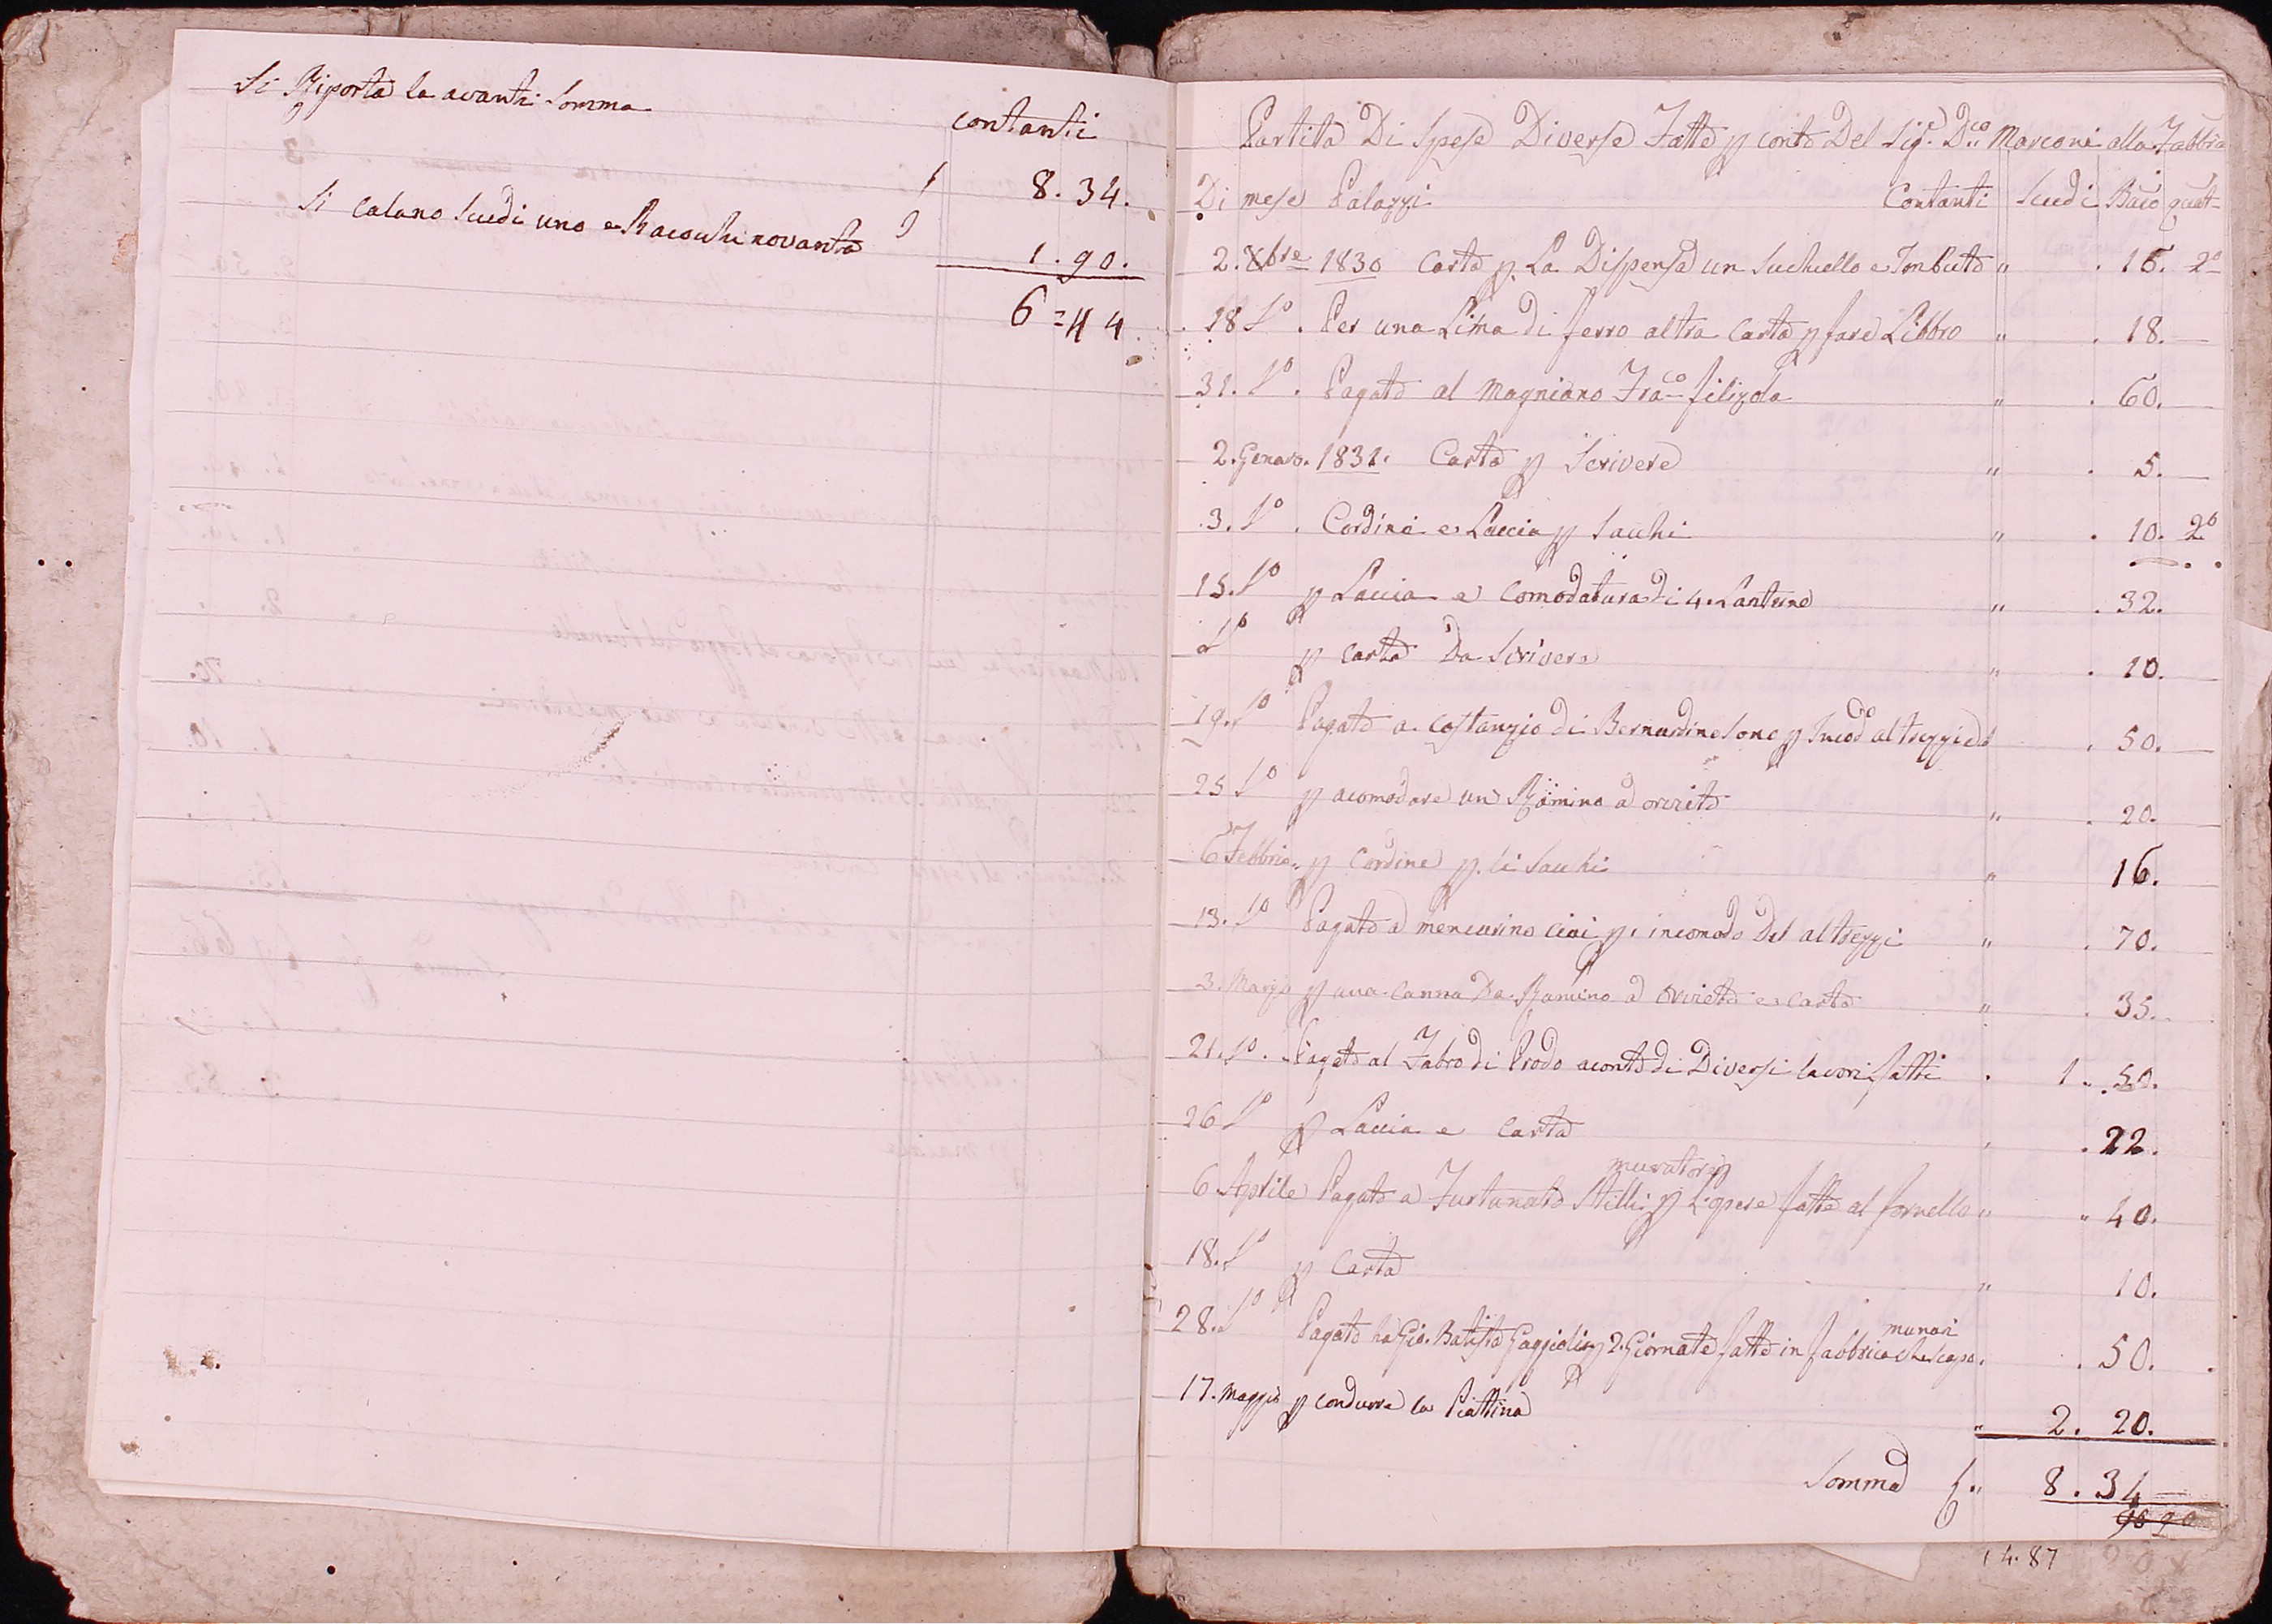 Si Riporta la avanti Somma
contanti
8. 34.
Si calano Scudi uno e Baiochi novanta
1. 90.
6 = 44
Partita Di Spese Diverse Fatte p conto Del Sig.r D.co Marconi alla Fabbrica
Di mese Palazzi Contanti Scudi Baio quat
2. Xbre 1830 Carta p La Dispensa un Suchiello e Imbuto " . 16. 2
18 do . Per una Lima di ferro altra Carta p fare Libbro " . 18.
31. do . Pagato al Magniano Fraco filizola " . 60.
2. Genaro. 1831. Carta p Scrivere " . 5.
.3. do . Cordine e Laccia p Sachi " . 10. 2
15. do p Laccia e Comodatura di 4. Lanterne " . 32.
do p Carta Da Scrivere " . 10.
19. do Pagato a Costanzio di Bernardino . 50.
25 do p acomodare un Ramino a orvieto " . 20.
6 Febbrio p Cordine p li Sachi " 16.
13. do Pagato a mencarino p. incomodo Del altreggi " . 70.
3. Marzo p una Canna Da Ramino a Orvieto e Carta " . 35.
21. do . Pagato al Fabro di Prodo aconto di Diversi lavori fatti . 1. 50.
26 do p Laccia e Carta . 22.
muratore p
6 Aprile Pagato a Furtunato Stilli p L'opere fatte al fornello " " 40.
18. do p Carta " 10.
munari
28. do Pagato ha Gio. Batista Gaggioli p 2. Giornate fatte in fabbrica . 50.
17. Maggio p condurre la Piattina " 2. 20.
Somma 8. 34
14.87